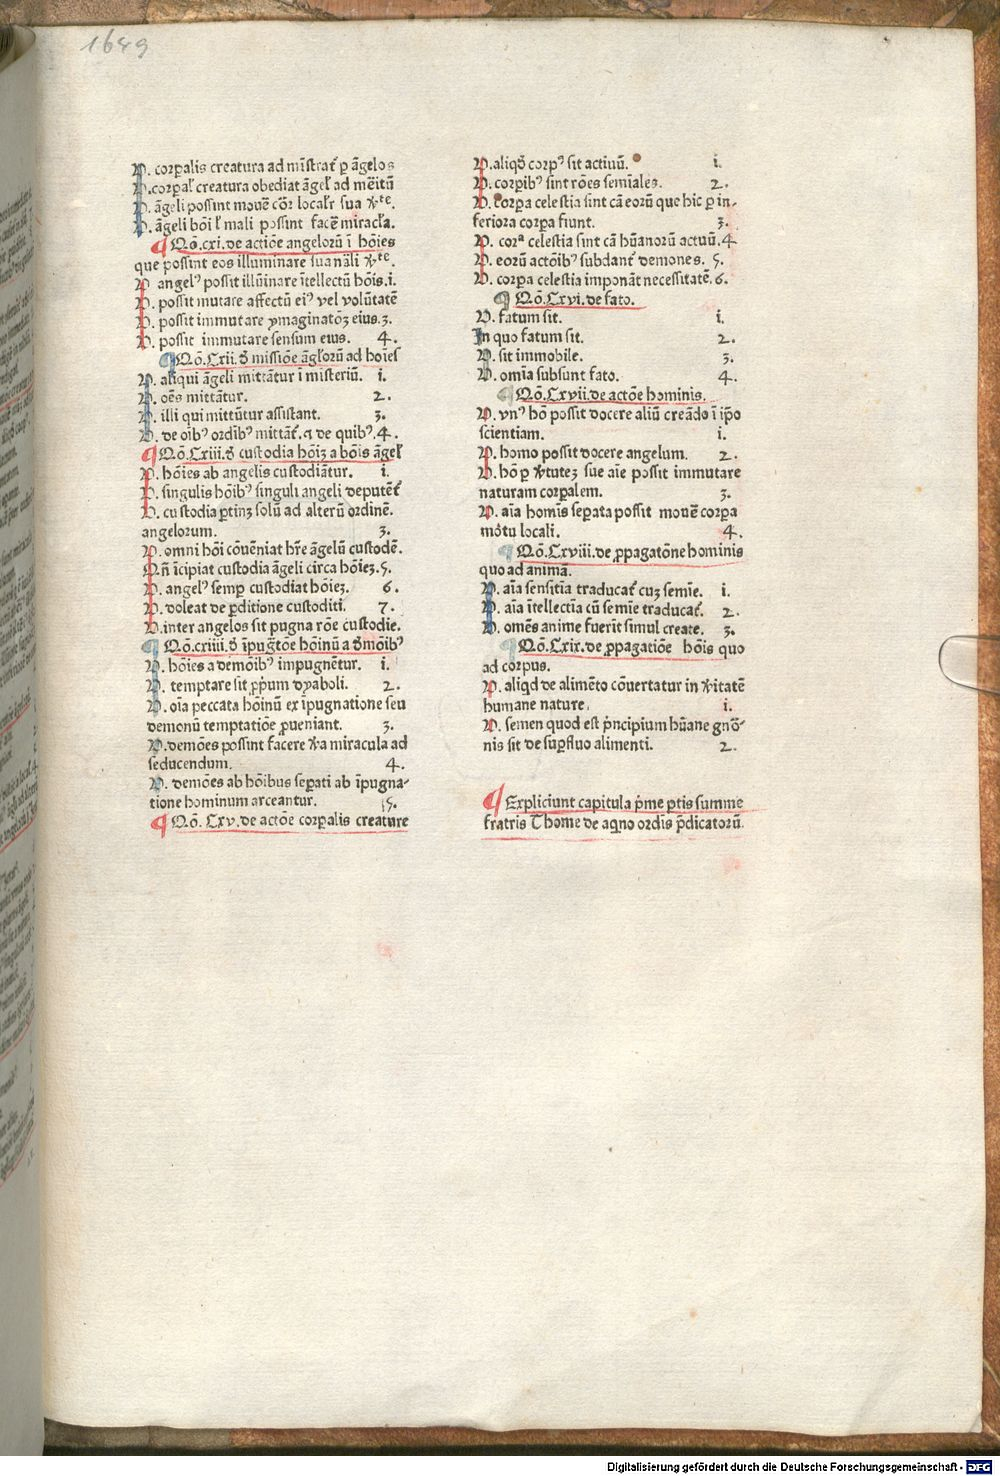 1649
V. corꝑalis creatura ad mīstrat᷑ ꝑ āgelos
V. corꝑaƚ creatura obediat āgeƚ ad mēitū
V. āgeli possint mouē coꝛ localr̄ sua ꝟᵗᵉ.
V. āgeli bōi ƚ mali possint facē miracƚa.
¶ Qō.cxi.de actiōe angelorū ī hōies
que possint eos illuminare sua nāli ꝟᵗᵉ.
V. angelꝰ possit illūinare ītellectū hōis.i.
V. possit mutare affectū eiꝰ vel volūtatē
V. possit immutare ymaginatōꝫ eius.3.
V. possit immutare sensum eius. 4.
¶ Qō.Cxii.ꝺ̄ missiōe āgƚorū ad hoīes
V. aliqui āgeli mittātur ī misteriū. i.
V. oēs mittātur. 2.
V. illi qui mittūtur assistant. 3.
V. de oībꝰ ordībꝰ mittāt᷑. ⁊ de quibꝰ.4.
¶ Qō.Cxiii.ꝺ̄ custodia hōiꝫ a bōis āgeƚ
V. hōies ab angelis custodiātur. i.
V. singulis hōibꝰ singuli angeli deputēt᷑
V. custodia ꝑtinꝫ solū ad alterū ordinē.
angelorum. 3.
V. omni hōi cōuēniat hr̄e āgelū custodē.
Qn̄ īcipiat custodia āgeli circa hōieꝫ.5.
V. angelꝰ semꝑ custodiat hōieꝫ. 6.
V. doleat de ꝑditione custoditi. 7.
V. inter angelos sit pugna rōe custodie.
¶ Qō.cxiiii.ꝺ̄ īpug̃tōe hōinū a ꝺ̄mōibꝰ
V. hōies a demōibꝰ impugnētur. i.
V. temptare sit ꝓpum dyaboli. 2.
V. oīa peccata hōinū ex īpugnatione seu
demonū temptatiōe ꝓueniant. 3.
V. demōes possint facere ꝟa miracula ad
seducendum. 4.
V. demōes ab hōibus seꝑati ab īpugna-
tione hominum arceantur. 5.
¶ Qō. Cxv. de actōe corꝑalis creature
V. aliqꝺ̄ corpꝰ sit actiuū. i.
V. corꝑibꝰ sint rōes semīales. 2.
V. corꝑa celestia sint cā eorū que hic ꝑ in-
feriora corꝑa fiunt. 3.
V. corᵃ celestia sint cā hūanorū actuū.4
V. eorū actōibꝰ subdant᷑ demones. 5.
V. corꝑa celestia imponāt necessitatē.6.
¶ Qō.Cxvi.de fato.
V. fatum sit. i.
In quo fatum sit. 2.
V. sit immobile. 3.
V. omīa subsunt fato. 4.
¶ Qō.Cxvii.de actōe hominis.
V. vnꝰ hō possit docere aliū creādo ī ip̄o
scientiam. i.
V. homo possit docere angelum. 2.
V. hō ꝑ ꝟtuteꝫ sue aīe possit immutare
naturam corꝑalem. 3.
V. aīa homīs seꝑata possit mouē corꝑa
mōtu locali. 4.
¶ Qō.Cxviii.de ꝓpagatōne hominis
quo ad animā.
V. aīa sensitīa traducat᷑ cuꝫ semīe. i.
V. aīa ītellectīa cū semīe traducat᷑. 2.
V. omēs anime fuerīt simul create. 3.
¶ Qō.Cxix.de ꝓpagatiōe hōis quo
ad corpus.
V. aliqd de alimēto cōuertatur in ꝟitatē
humane nature. i.
V. semen quod est pͥncipium hūane gnō-
nis sit de suꝑfluo alimenti. 2.
¶ Expliciunt capitula pͥme ꝑtis summe
fratris Thome de aqno ordīs p̄dicatorū.
Digitalisierung gefördert durch die Deutsche Forschungsgemeinschaft - DFG